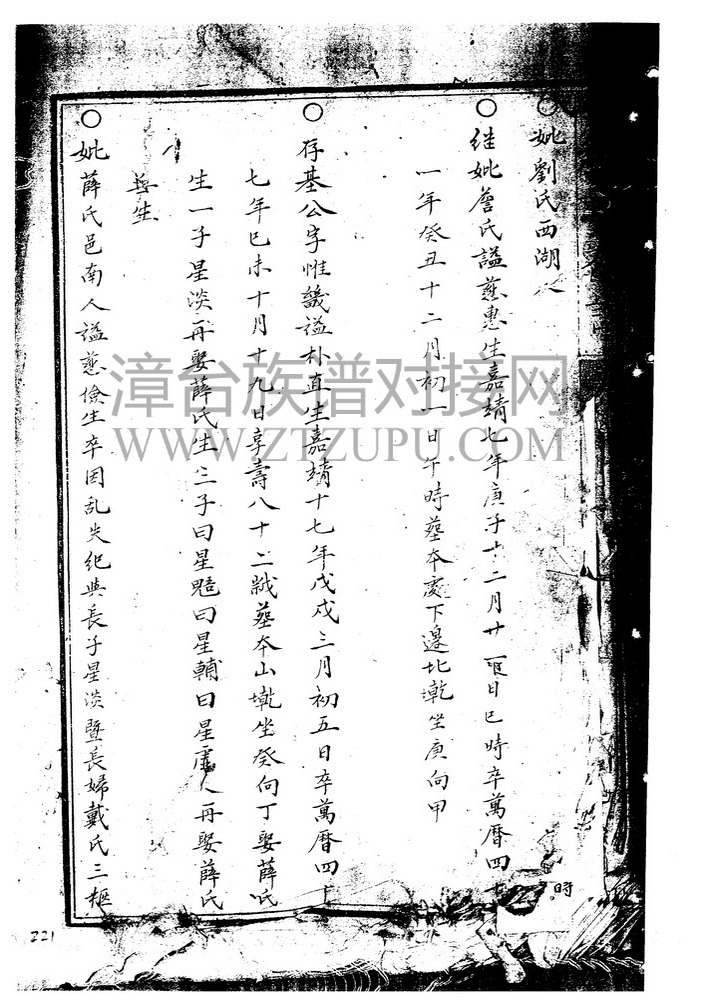 ○妣劉氏西湖人
○继妣詹氏謚慈惠生嘉靖七年庚子十二月廿日巳時卒萬曆四十
一年癸丑十二月初一日午時墓本處下邊圵墘坐庚向甲
○存基公字惟謚朴直生嘉靖十七年戊戌三月初五日卒萬曆四十
七年已未十月十九日享壽八十二歲墓本山墘坐癸向丁娶薛氏
生一子星淡再娶薛氏生三子曰星曰星輔曰星再娶薛氏
生
○妣薛氏邑南人謚慈儉生卒因乱失纪與長子星淡暨長婦戴氏三柩
時
221
漳台族谱对接网
WWW.ZTZUPU.COM